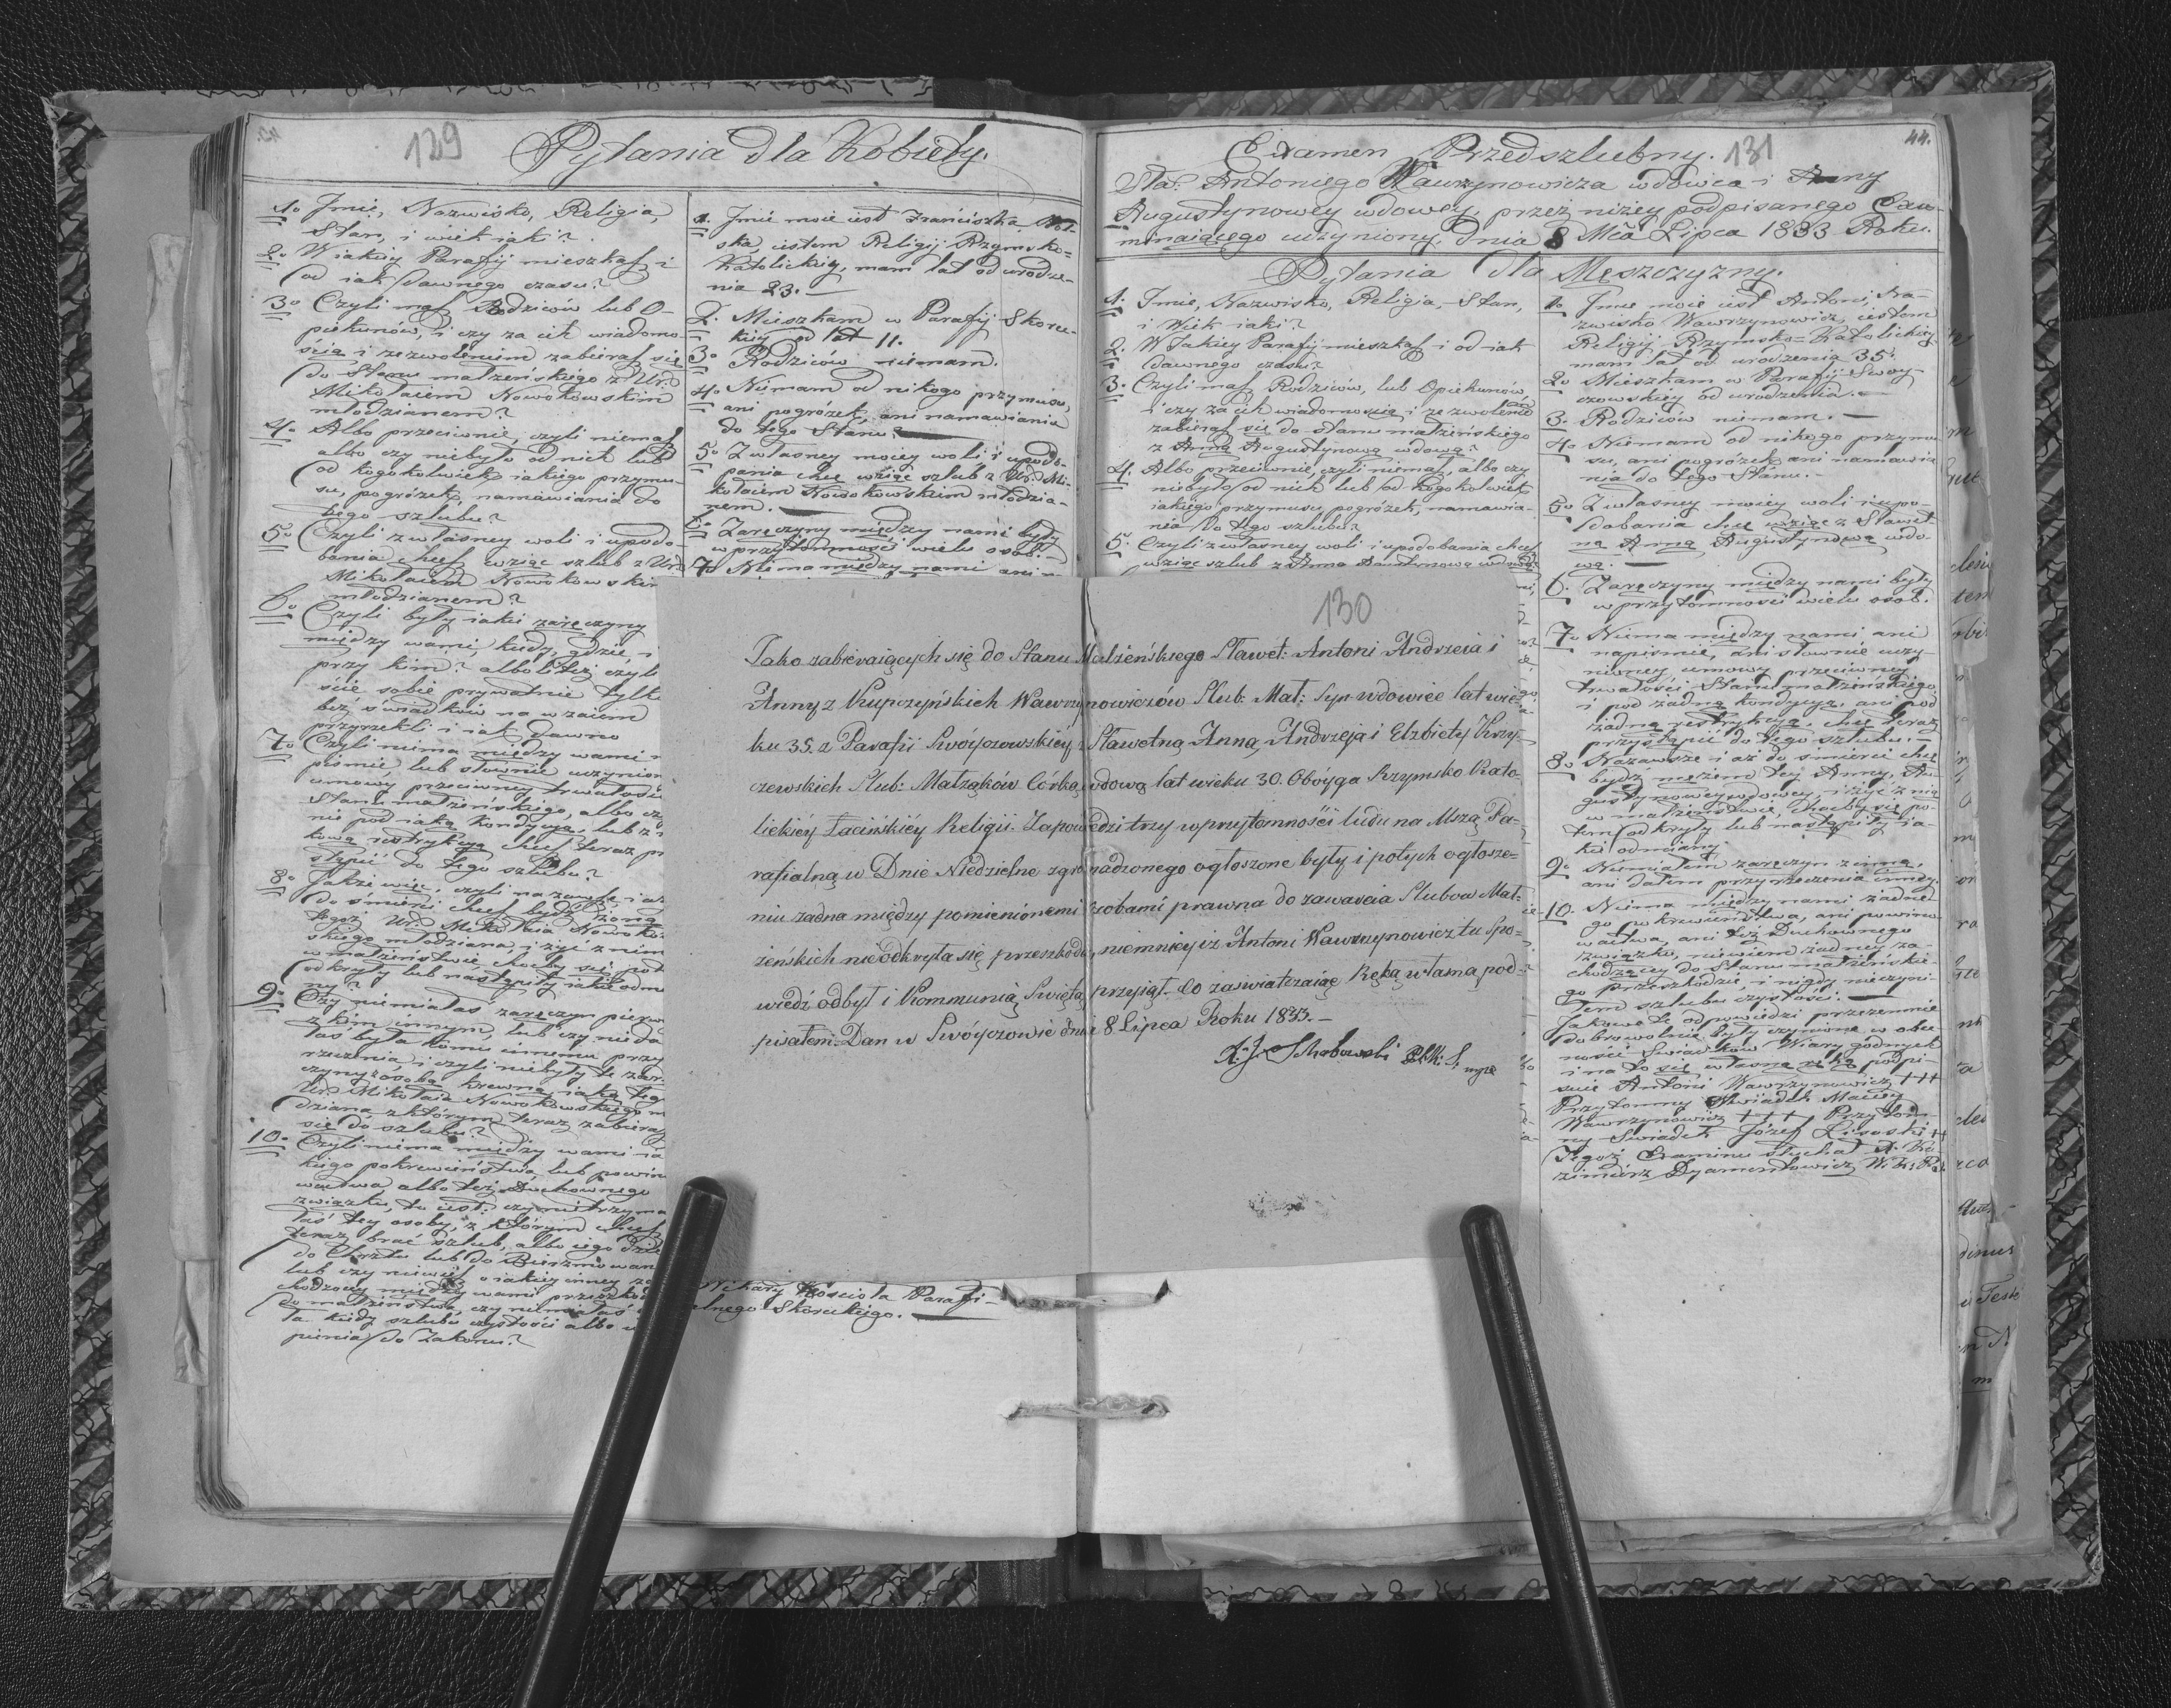 129
Pytania dla Kobiety.
1o Imie, Nazwisko, Religia,
Stan, i wiek iaki?
2o W iakiey Parafij mieszkasz i
od iak dawnego czasu?
3o Czyli masz Rodziców lub O-
piekunów, i czy za ich wiadomo-
ścią i zezwoleniem zabierasz się
do Stanu małżeńskiego z Ur.
Mikołaiem Nowokowskim
młodzianem?
4o Albo przeciwnie, czyli niemasz
albo czy niebyło od nich lub
od kogokolwiek iakiego przymu-
su, pogróżek, namawiania do
tego szlubu?
5o Czyli z własney woli i upodo-
bania chcesz wziąć szlub z Ur.
Mikołaiem Nowokowskim
młodzianem?
6o Czyli były iakie zaręczyny
między wami, kiedy, gdzie i
przy kim? albo też czyli
ście sobie prywatnie tylko
bez świadków na wzaiem
przyrzekli i iak dawno
7o Czyli niema między wami
piśmie, lub słownie uczynion
umowy przeciwney trwałości
Stanu małżeńskiego, albo czy
nie pod iaką kondycyą, lub z
kową restrykcyą chcesz teraz pr
stąpić do tego szlubu?
8o Jakże więc, czyli na zawsze i aż
do śmierci chcesz bydź żoną
tegoż Ur. Mikołaia Nowokow
skiego młodziana, i żyć z nim
w małżeństwie choćby się pot
odkryły lub nastąpiły iakie odmia
ny?
9o Czy niemiałaś zaręczyn pierw
z kim innym, lub czy nieda
łaś była komu innemu przy
rzeczenia, i czyli niebyły te zar
czyny z osobą krewną iaką teg
Ur. Mikołaia Nowokowskiego m
dziana z którym teraz zabierasz
się do szlubu?
10o Czyli niema między wami ia
kiego pokrewieństwa lub powino
wactwa albo też Duchownego
związku, to iest: czy nietrzyma
łaś tey osoby, z którym chcesz
teraz brać szlub, albo iego dzie
do Chrztu lub do Bierzmowan
lub czy niewiesz o iakiey inney za
chodzącey między wami przeszkod
do małżeństwa, czy niemiałaś
ta kiedy szlubu czystości albo
pienia do Zakonu?
1. Imie moie iest Franciszka Wol-
ska, iestem Religij Rzymsko=
Katolickiey, mam lat od urodze-
nia 23.
2. Mieszkam w Parafij Skorec-
kiey od lat 11.
3o Rodziców niemam.
4o Niemam od nikogo przymusu,
ani pogróżek, ani namawiania
do tego Stanu.
5o Z własney moiey woli i upodo-
bania chcę wziąć szlub z Ur. Mi-
kołaiem Nowokowskim młodzia-
nem.
6o Zaręczyny między nami były
w przytomności wielu osób.
7o Niema między nami ani
Wikary Kościoła Parafi-
alnego Skoreckiego.
130
Jako zabieraiących się do Stanu Małżeńskiego Sławet: Antoni Andrzeia i
Anny z Kupczyńskich Wawrzynowiczów Szlub: Mał: Syn wdowiec lat wie-
ku 35. z Parafii Swóyczowskiéy z Sławetną Anną, Andrzeja i Elżbiety Krzy-
czewskich Szlub: Małżąków Córką wdową lat wieku 30. Oboyga Rzymsko Kato-
lickiéy Łacińskiéy Religii. Zapowiedzi trzy w przytomności ludu na Mszą Pa-
rafialną w Dnie Niedzielne zgromadzonego ogłoszone były i po tych ogłosze-
niu żadna między pomienionemi osobami prawna do zawarcia Slubow Mał-
żeńskich nieodkryła się przeszkoda, niemniey iż Antoni Wawrzynowicz tu Spo-
wiedź odbył i Kommunią Swiętą przyiął. Co zaświadczaiąc Ręką własną pod-
pisałem. Dan w Swóyczowie dnia 8 Lipca Roku 1833.
131
44.
Examen Przedszlubny.
Sła: Antoniego Wawrzynowicza wdowca i Anny
Augustynowey wdowey, przez niżey podpisanego Exa-
minaiącego uczyniony. Dnia 8 Mca Lipca 1833 Roku.
Pytania dla Męszczyzny.
1. Imie, Nazwisko, Religia, Stan,
i Wiek iaki?
2. W Jakiey Parafij mieszkasz i od iak
dawnego czasu?
3. Czyli masz Rodziców, lub Opiekunów,
i czy za ich wiadomością i zezwoleniem
zabierasz się do stanu małżeńskiego
z Anną Augustynową wdową?
4. Albo przeciwnie, czyli niemasz, albo czy
niebyło od nich lub od kogokolwiek
iakiego przymusu, pogróżek, namawia-
nia do tego szlubu?
5. Czyli z własney woli i upodobania chcesz
wziąć szlub z Anną Augustynową wdową?
1o Imie moie iest Antoni, Na-
zwisko Wawrzynowicz, iestem
Religij Rzymsko=Katolickiey
mam lat od urodzenia 35.
2o Mieszkam w Parafij Swoy-
czowskiey od urodzenia.
3. Rodziców niemam.
4o Niemam od nikogo przymu-
su, ani pogróżek ani namawia
nia do tego Stanu.
5o Z własney moiey woli i upo-
dobania chcę wziąć z Sławet-
ną Anną Augustynową wdo-
wą.
6. Zaręczyny między nami były
w przytomności wielu osób.
7o Niema między nami ani
na piśmie, ani słownie uczy-
nioney umowy przeciwney
trwałości Stanu małżeńskiego
i pod żadną kondycyą, ani pod
żadną restrykcyą, chcę teraz
przystąpić do tego szlubu.
8o Nazawsze i aż do śmierci chcę
bydź mężem tey Anny Au-
gustynowey wdowey, i żyć z nią
w małżeństwie, choćby się po-
tem odkryły lub nastąpiły ia-
kie odmiany.
9o Niemiałem zaręczyn z inną,
ani dałem przyrzeczenia inney.
10. Niema między nami żadne-
go pokrewieństwa, ani powino-
wactwa, ani też Duchownego
związku, niewiem żadney za-
chodzącey do Stanu małżeńskie-
go przeszkodzie, i nigdy nieczyni-
łem szlubu czystości.
Jakowe te odpowiedzi przezemnie
dobrowolnie były czynione w obec-
ności Swiadków Wiary godnych
i na to się własną ręką podpi-
suie Antoni Wawrzynowicz +++
Przytomny Swiadek Maciey
Wawrzynowicz +++ Przytom-
ny Swiadek Józef Lisoski ++
Tegoż Examinu słuchał X. Ka-
zimierz Dyamentowicz W. K. P. S.